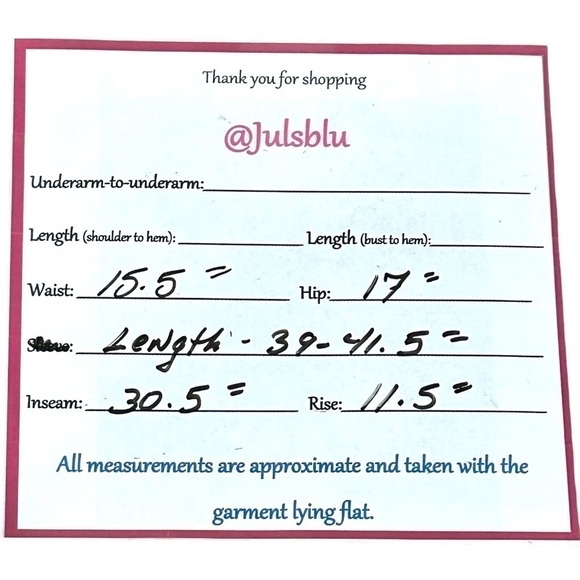 Thank you for shopping
@Julsblu
Underarm-to-underarm:
Length (shoulder to hem): Length (bust to hem):
Waist: 15.5" Hip: 17"
Length - 39-41.5"
Inseam: 30.5" Rise: 11.5"
All measurements are approximate and taken with the
garment lying flat.